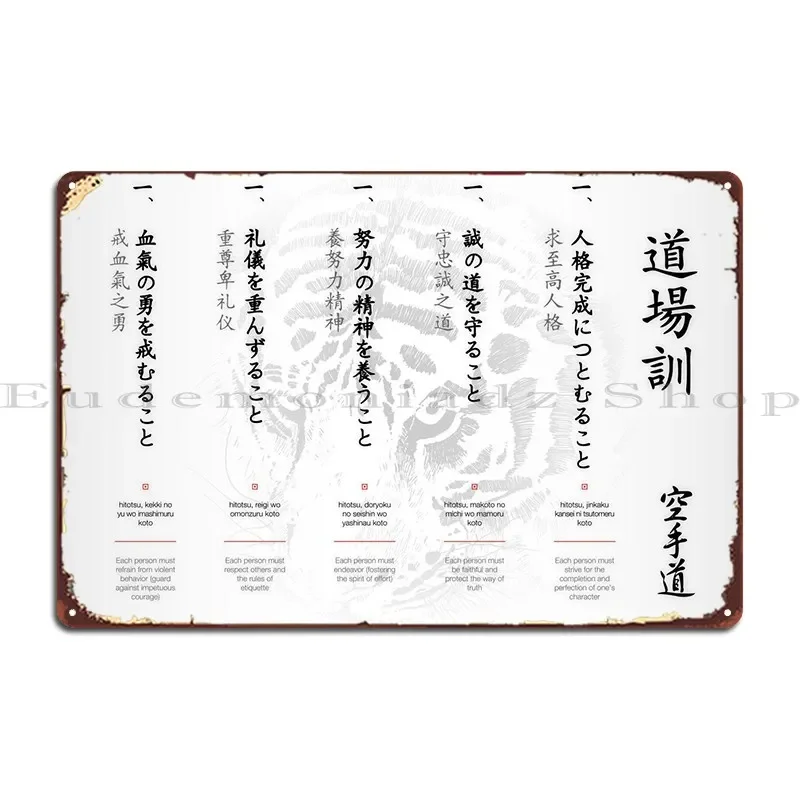 道場訓
空手道
一、
人格完成につとむること
求至高人格
hitotsu, jinkaku
kansei ni tsutomeru
koto
Each person must
strive for the
completion and
perfection of one's
character
一、
誠の道を守ること
守忠誠之道
hitotsu, makoto no
michi wo mamoru
koto
Each person must
be faithful and
protect the way of
truth
一、
努力の精神を養うこと
養努力精神
hitotsu, doryoku
no seishin wo
yashinau koto
Each person must
endeavor (fostering
the spirit of effort)
一、
礼儀を重んずること
重尊卑礼仪
hitotsu, reigi wo
omonzuru koto
Each person must
respect others and
the rules of
etiquette
一、
血氣の勇を戒むること
戒血氣之勇
hitotsu, kekki no
yu wo imashimuru
koto
Each person must
refrain from violent
behavior (guard
against impetuous
courage)
Eudemoniadz Shop